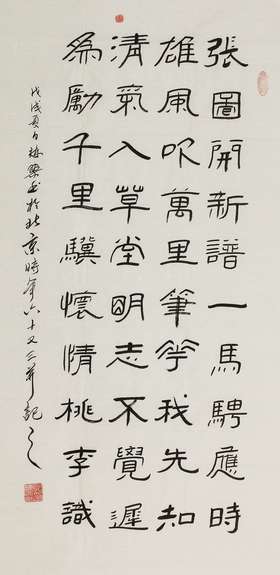 張圖開新譜一馬騁應時
雄風吹萬里筆花我先知
清氣入草堂明志不覺遲
為勵千里驥懷情桃李識
戊戌夏月书於北京時年六十又三并記之